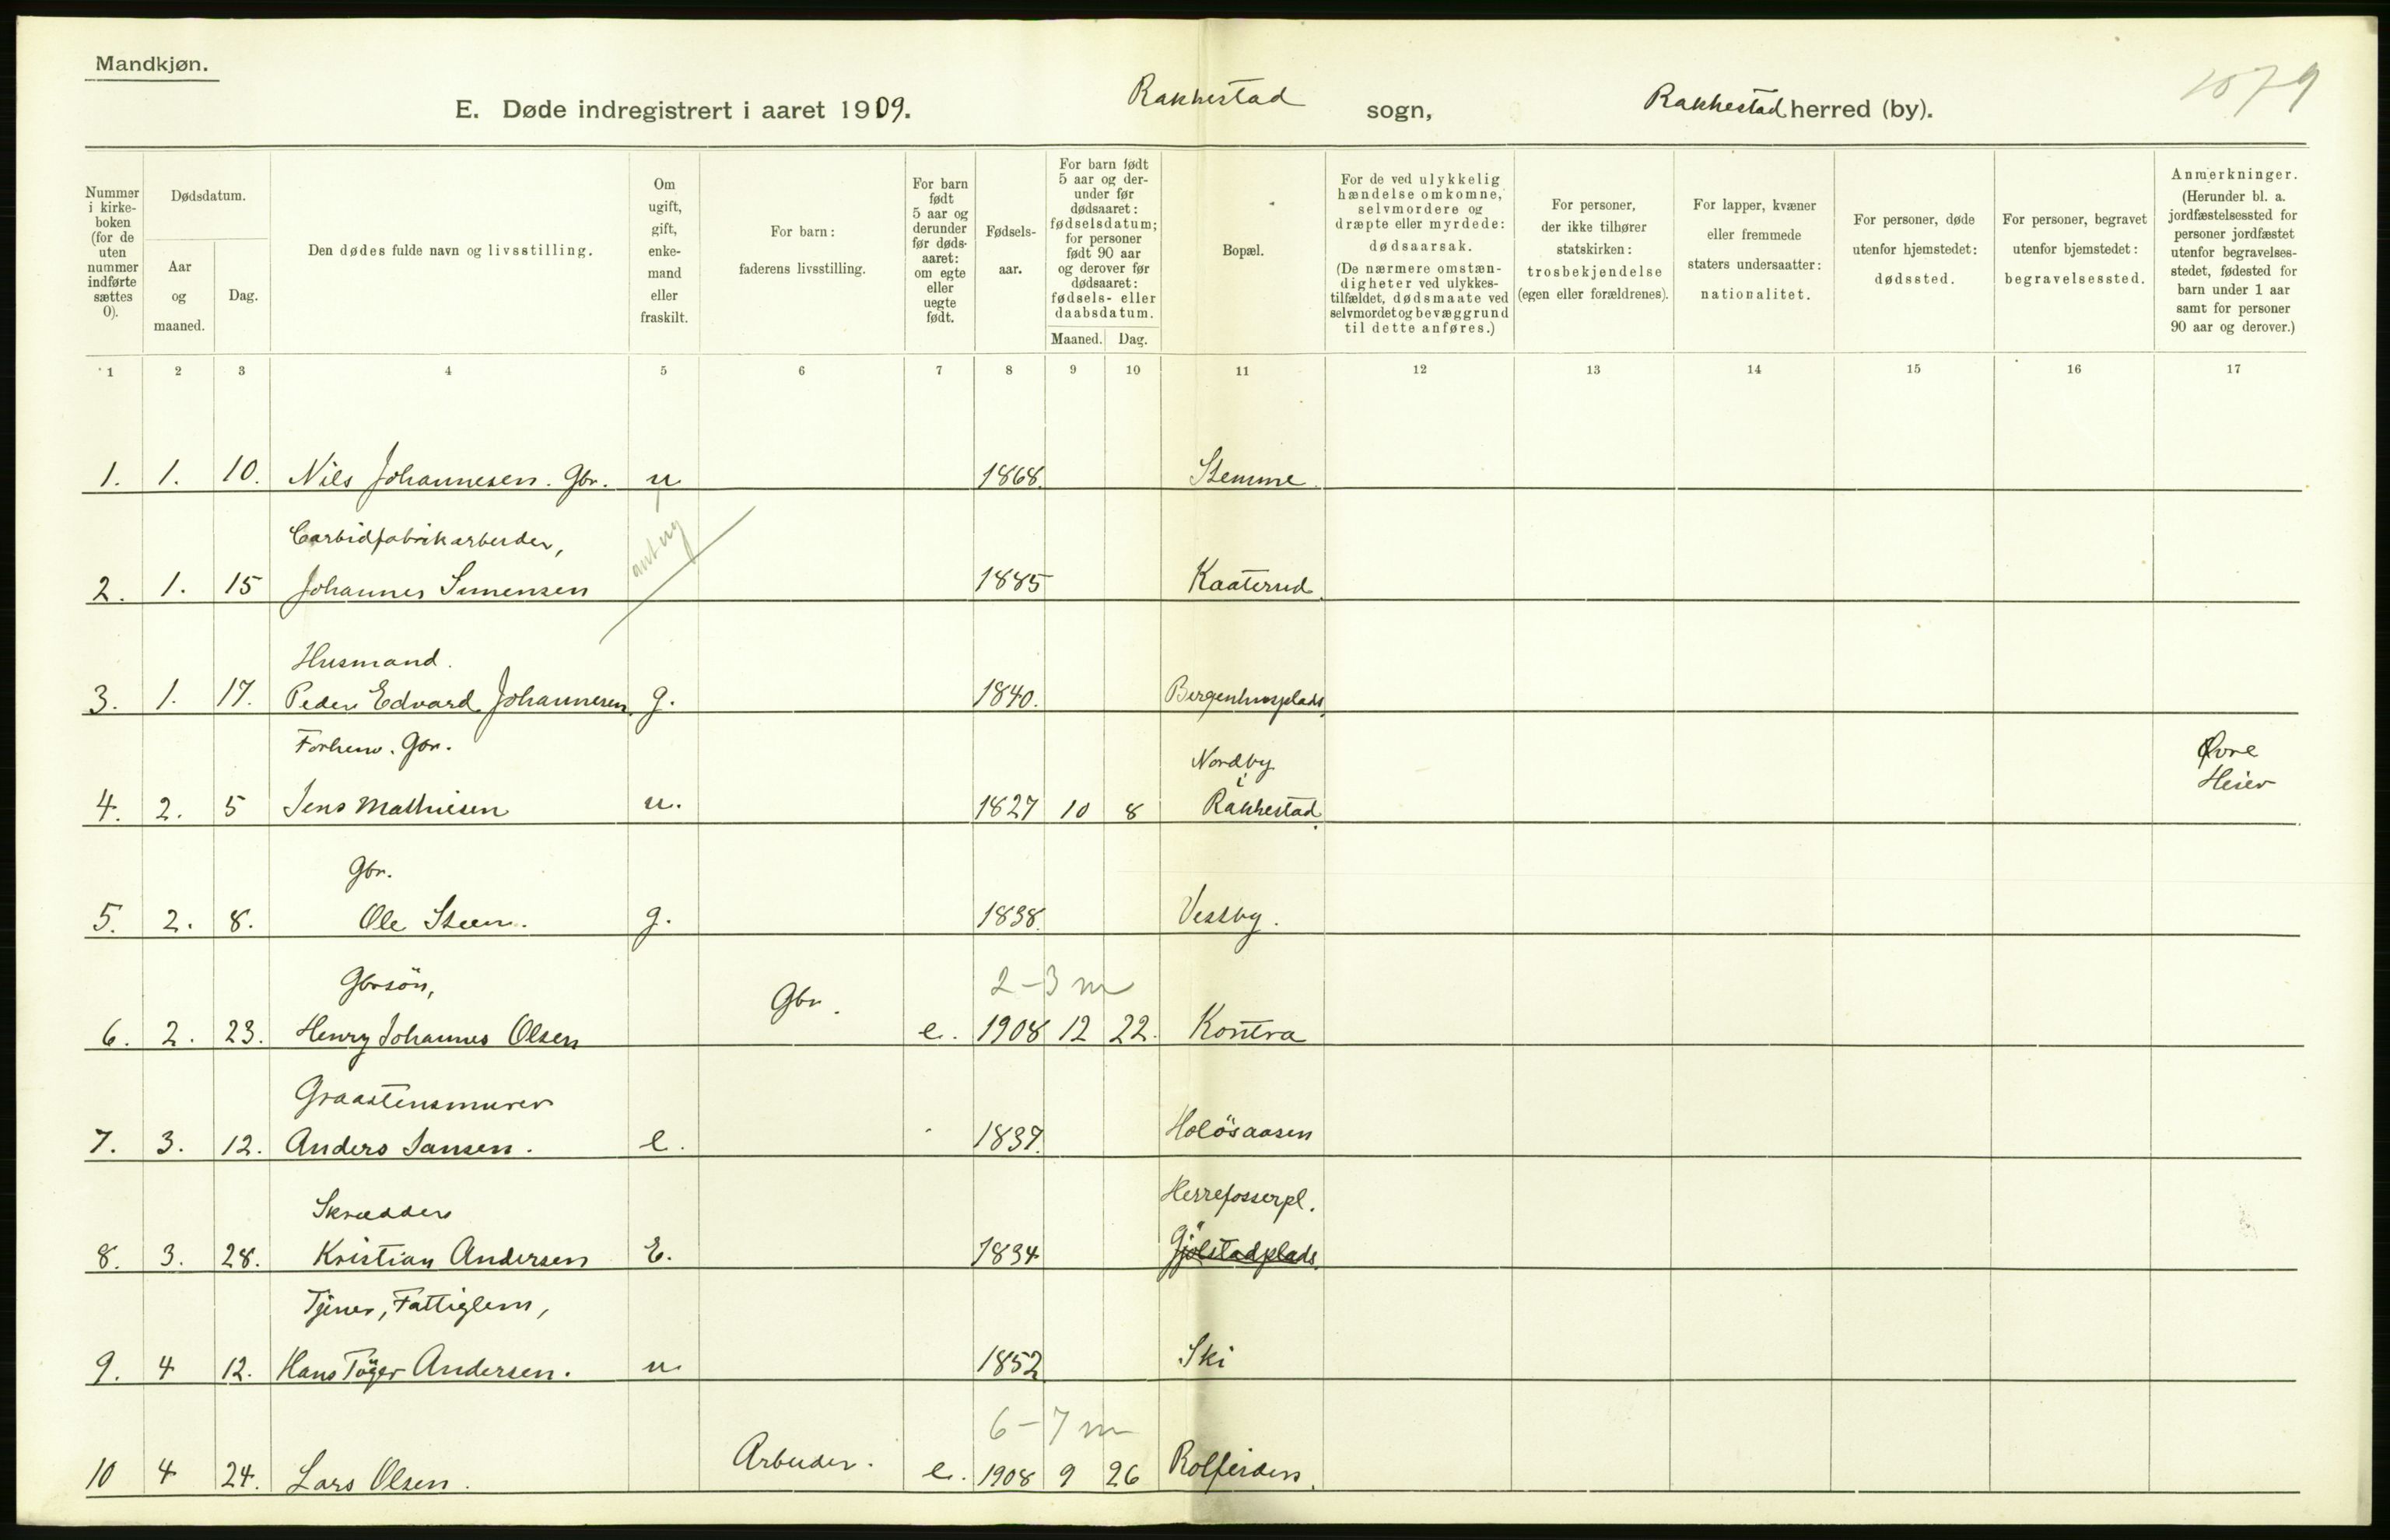 Mandkjøn.
E. Døde indregistrert i aaret 1909. Rakkestad sogn, Rakkestad herred (by).
Nummer i kirke- boken (for de uten nummer indførte sættes 0).
Dødsdatum.
Aar og maaned.
Dag.
Den dødes fulde navn og livsstilling.
Om ugift, gift, enke- mand eller fraskilt.
For barn: faderens livsstilling.
For barn født 5 aar og derunder før døds- aaret: om egte eller uegte født.
Fødsels- aar.
For barn født 5 aar og der- under før dødsaaret: fødselsdatum; for personer født 90 aar og derover før dødsaaret: fødsels- eller daabsdatum.
Maaned. Dag.
Bopæl.
For de ved ulykkelig hændelse omkomne, selvmordere og dræpte eller myrdede: dødsaarsak. (De nærmere omstæn- digheter ved ulykkes- tilfældet, dødsmaate ved selvmordet og bevæggrund til dette anføres.)
For personer, der ikke tilhører statskirken: trosbekjendelse (egen eller forældrenes).
For lapper, kvæner eller fremmede staters undersaatter: nationalitet.
For personer, døde utenfor hjemstedet: dødssted.
For personer, begravet utenfor bjemstedet: begravelsessted.
Anmerkninger. (Herunder bl. a. jordfæstelsessted for personer jordfæstet utenfor begravelses- stedet, fødested for barn under 1 aar samt for personer 90 aar og derover.)
1 2 3 4 5 6 7 8 9 10 11 12 13 14 15 16 17
1. 1. 10. Nils Johannesen. Gbr. u 1868. Stemme
Carbidfabrikarbeider,
2. 1. 15 Johannes Simensen 1885 Kaaterud.
Husmand.
3. 1. 17. Peder Edvard Johannesen. g. 1840. Bergenhusplads.
Forhenv. Gbr. Nordby i Øvre Heier
4. 2. 5 Jens Mathiesen u. 1827 10 8 Rakkestad.
Gbr.
5. 2. 8. Ole Steen. g. 1838. Vestby.
Gbrsön, Gbr. 2-3 m
6. 2. 23. Henry Johannes Olsen e. 1908 12 22. Kontra
Graastensmurer
7. 3. 12. Anders Jansen. e. 1837. Holösaasen
Skrædder Herrefosserpl.
8. 3. 28. Kristian Andersen E. 1834 Gjölstadplads.
Tjener, Fattiglem,
9. 4 12. Hans Töger Andersen. u. 1852. Ski
6-7 m
10 4 24. Lars Olsen. Arbeider. e. 1908 9 26 Rolfeiden.